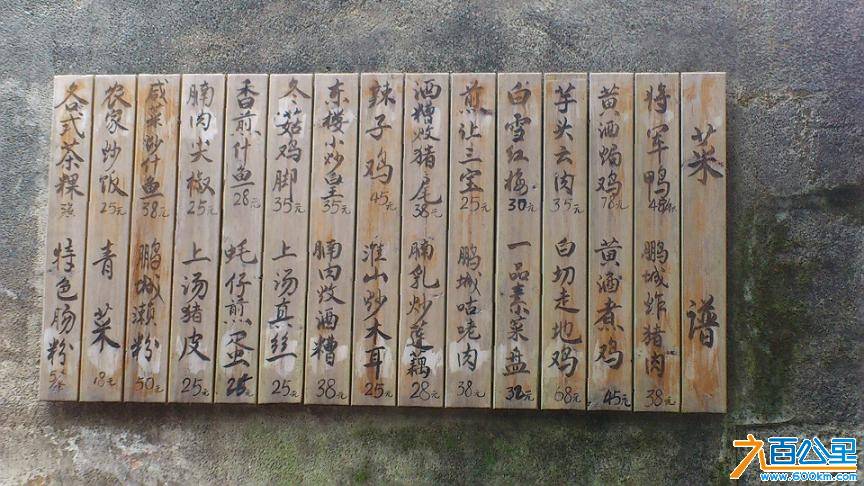 菜谱
将军鸭48
鹏城炸猪肉38元
黄酒焗鸡78元
黄酒煮鸡45元
芋头云肉35元
白切走地鸡68元
白雪红梅30元
一品素菜盘32元
煎让三宝25元
鹏城咕咾肉38元
酒糟炆猪尾38元
腩乳炒莲藕28元
辣子鸡45元
淮山炒木耳25元
东楼小炒皇35元
腩肉炆酒糟38元
冬菇鸡脚35元
上汤真丝25元
香煎什鱼28元
蚝仔煎蛋25元
腩肉尖椒25元
上汤猪皮25元
咸菜炒什鱼38元
鹏城濑粉50元
农家炒饭25元
青菜18元
各式茶粿
特色肠粉
六百公里
www.600km.com